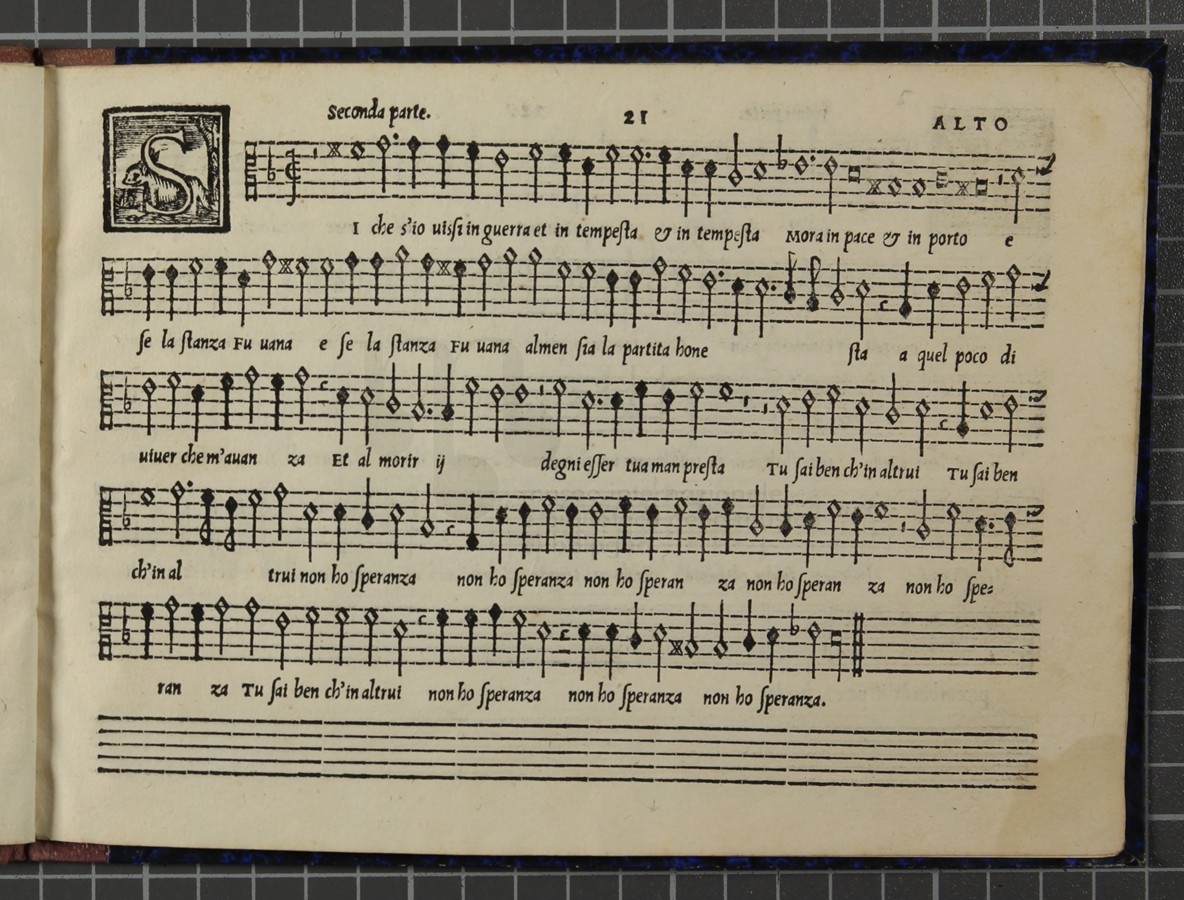 Seconda parte. 21 ALTO
SI che s'io uissi in guerra et in tempesta & in tempesta Mora in pace & in porto e
se la stanza Fu uana e se la stanza Fu uana almen sia la partita hone sta a quel poco di
uiuer che m'auan za Et al morir ij degni esser tua man presta Tu sai ben ch'in altrui Tu sai ben
ch'in al trui non ho speranza non ho speranza non ho speran za non ho speran za non ho spe=
ran za Tu sai ben ch'in altrui non ho speranza non ho speranza non ho speranza.